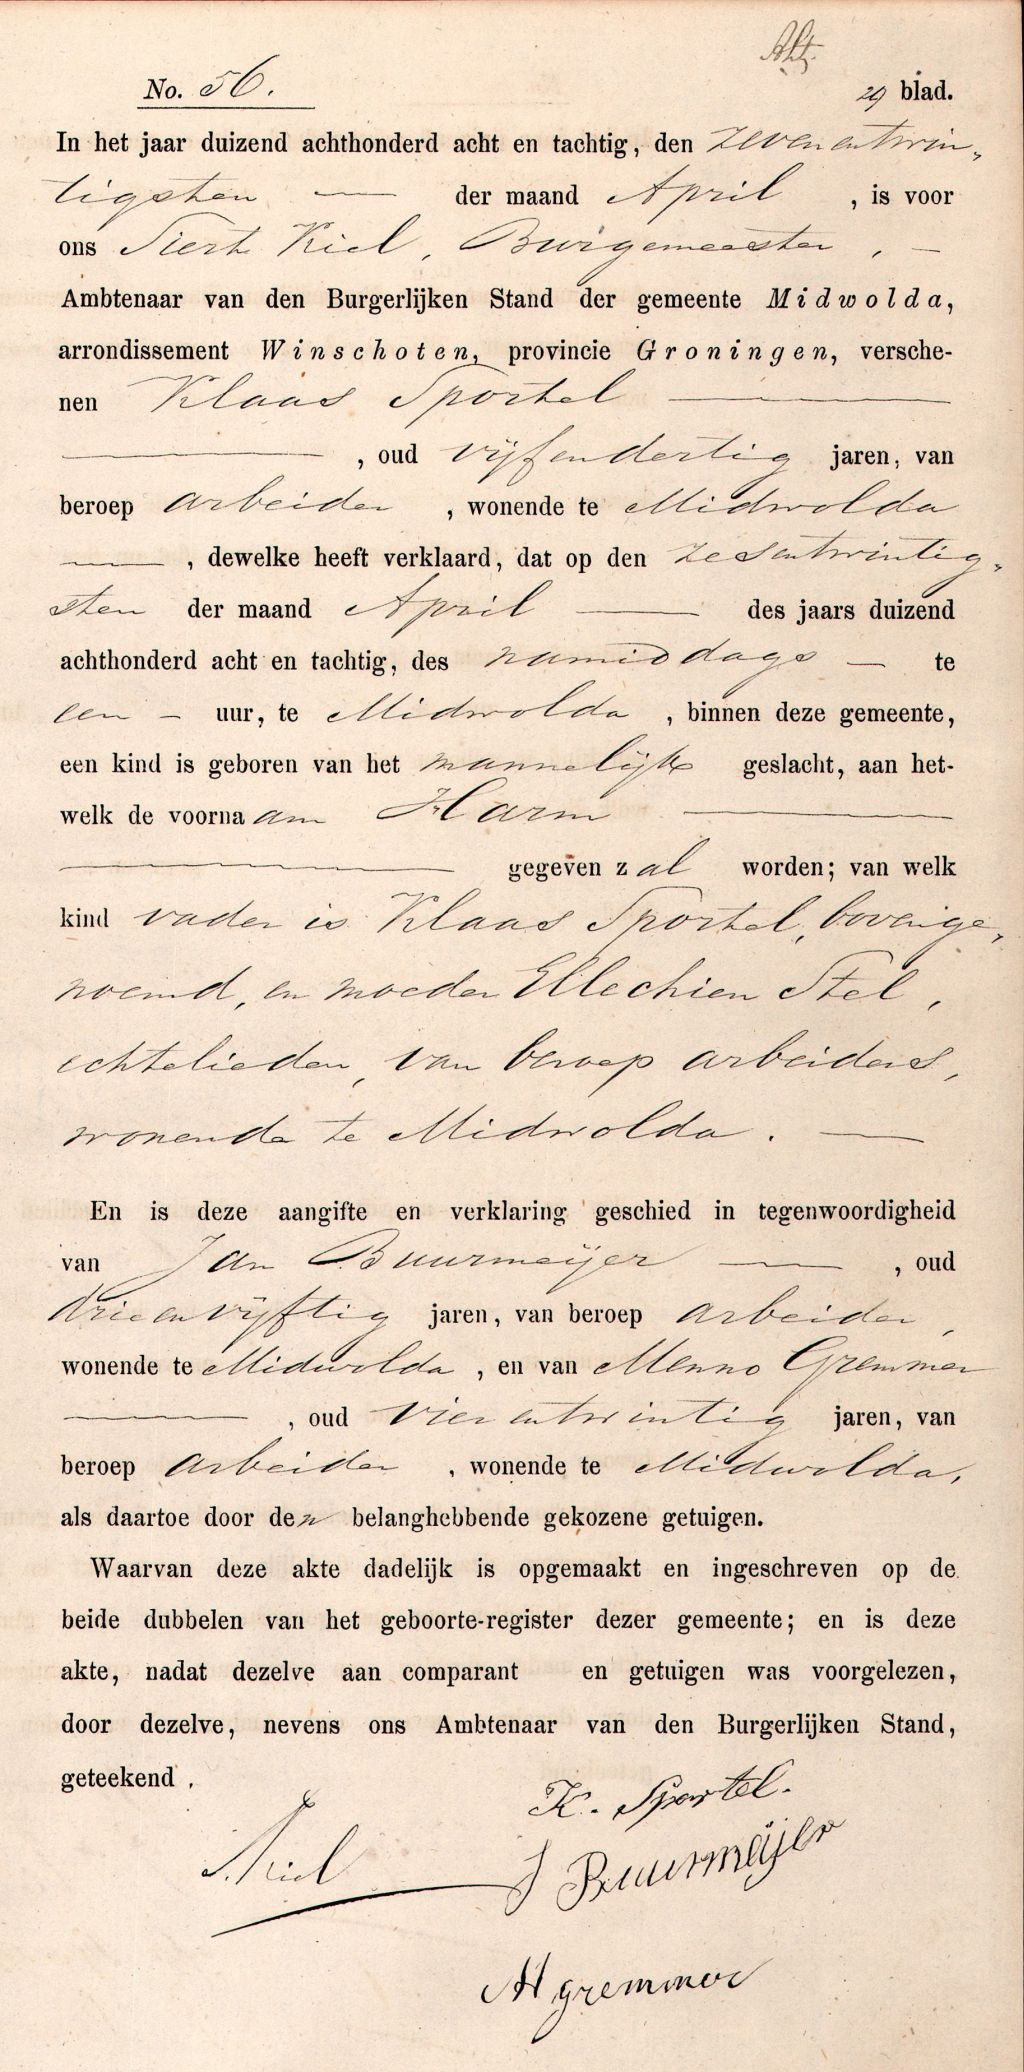 No. 56.
29 blad.
In het jaar duizend achthonderd acht en tachtig, den zevenentwin-
tigsten der maand April , is voor
ons Siert Kiel, Burgemeester,
Ambtenaar van den Burgerlijken Stand der gemeente Midwolda,
arrondissement Winschoten, provincie Groningen, versche-
nen Klaas Sportel
, oud vijfendertig jaren, van
beroep arbeider , wonende te Midwolda
, dewelke heeft verklaard, dat op den zesentwintig-
sten der maand April des jaars duizend
achthonderd acht en tachtig, des namiddags te
een uur, te Midwolda , binnen deze gemeente,
een kind is geboren van het mannelijk geslacht, aan het-
welk de voornaam Harm
gegeven zal worden; van welk
kind vader is Klaas Sportel, bovenge-
noemd, en moeder Ellechien Stel,
echtelieden, van beroep arbeiders,
wonende te Midwolda.
En is deze aangifte en verklaring geschied in tegenwoordigheid
van Jan Buurmeijer , oud
drieenvijftig jaren, van beroep arbeider,
wonende te Midwolda , en van Menno Gremmer
, oud vierentwintig jaren, van
beroep arbeider , wonende te Midwolda,
als daartoe door den belanghebbende gekozene getuigen.
Waarvan deze akte dadelijk is opgemaakt en ingeschreven op de
beide dubbelen van het geboorte-register dezer gemeente; en is deze
akte, nadat dezelve aan comparant en getuigen was voorgelezen,
door dezelve, nevens ons Ambtenaar van den Burgerlijken Stand,
geteekend.
K. Sportel.
S. Kiel
J Buurmeijer
M gremmer